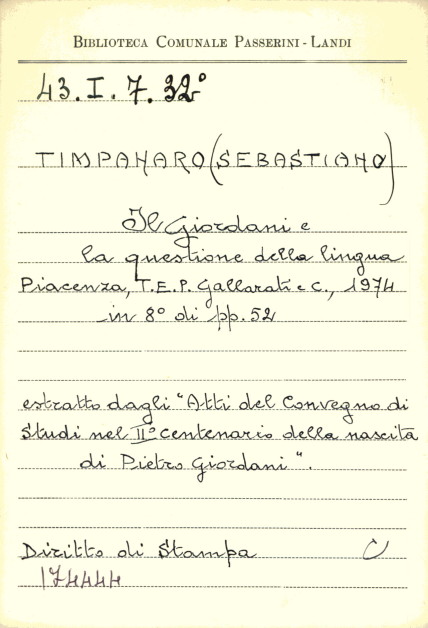 BIBLIOTECA COMUNALE PASSERINI-LANDI
43.I.7.32°
TIMPANARO (SEBASTIANO)
Il Giordani e
la questione della lingua
Piacenza, T.E.P. Gallarati e C., 1974
in 8° di pp. 52
estratto dagli "Atti del Convegno di
Studi nel II° centenario della nascita
di Pietro Giordani".
Diritto di Stampa C
174444